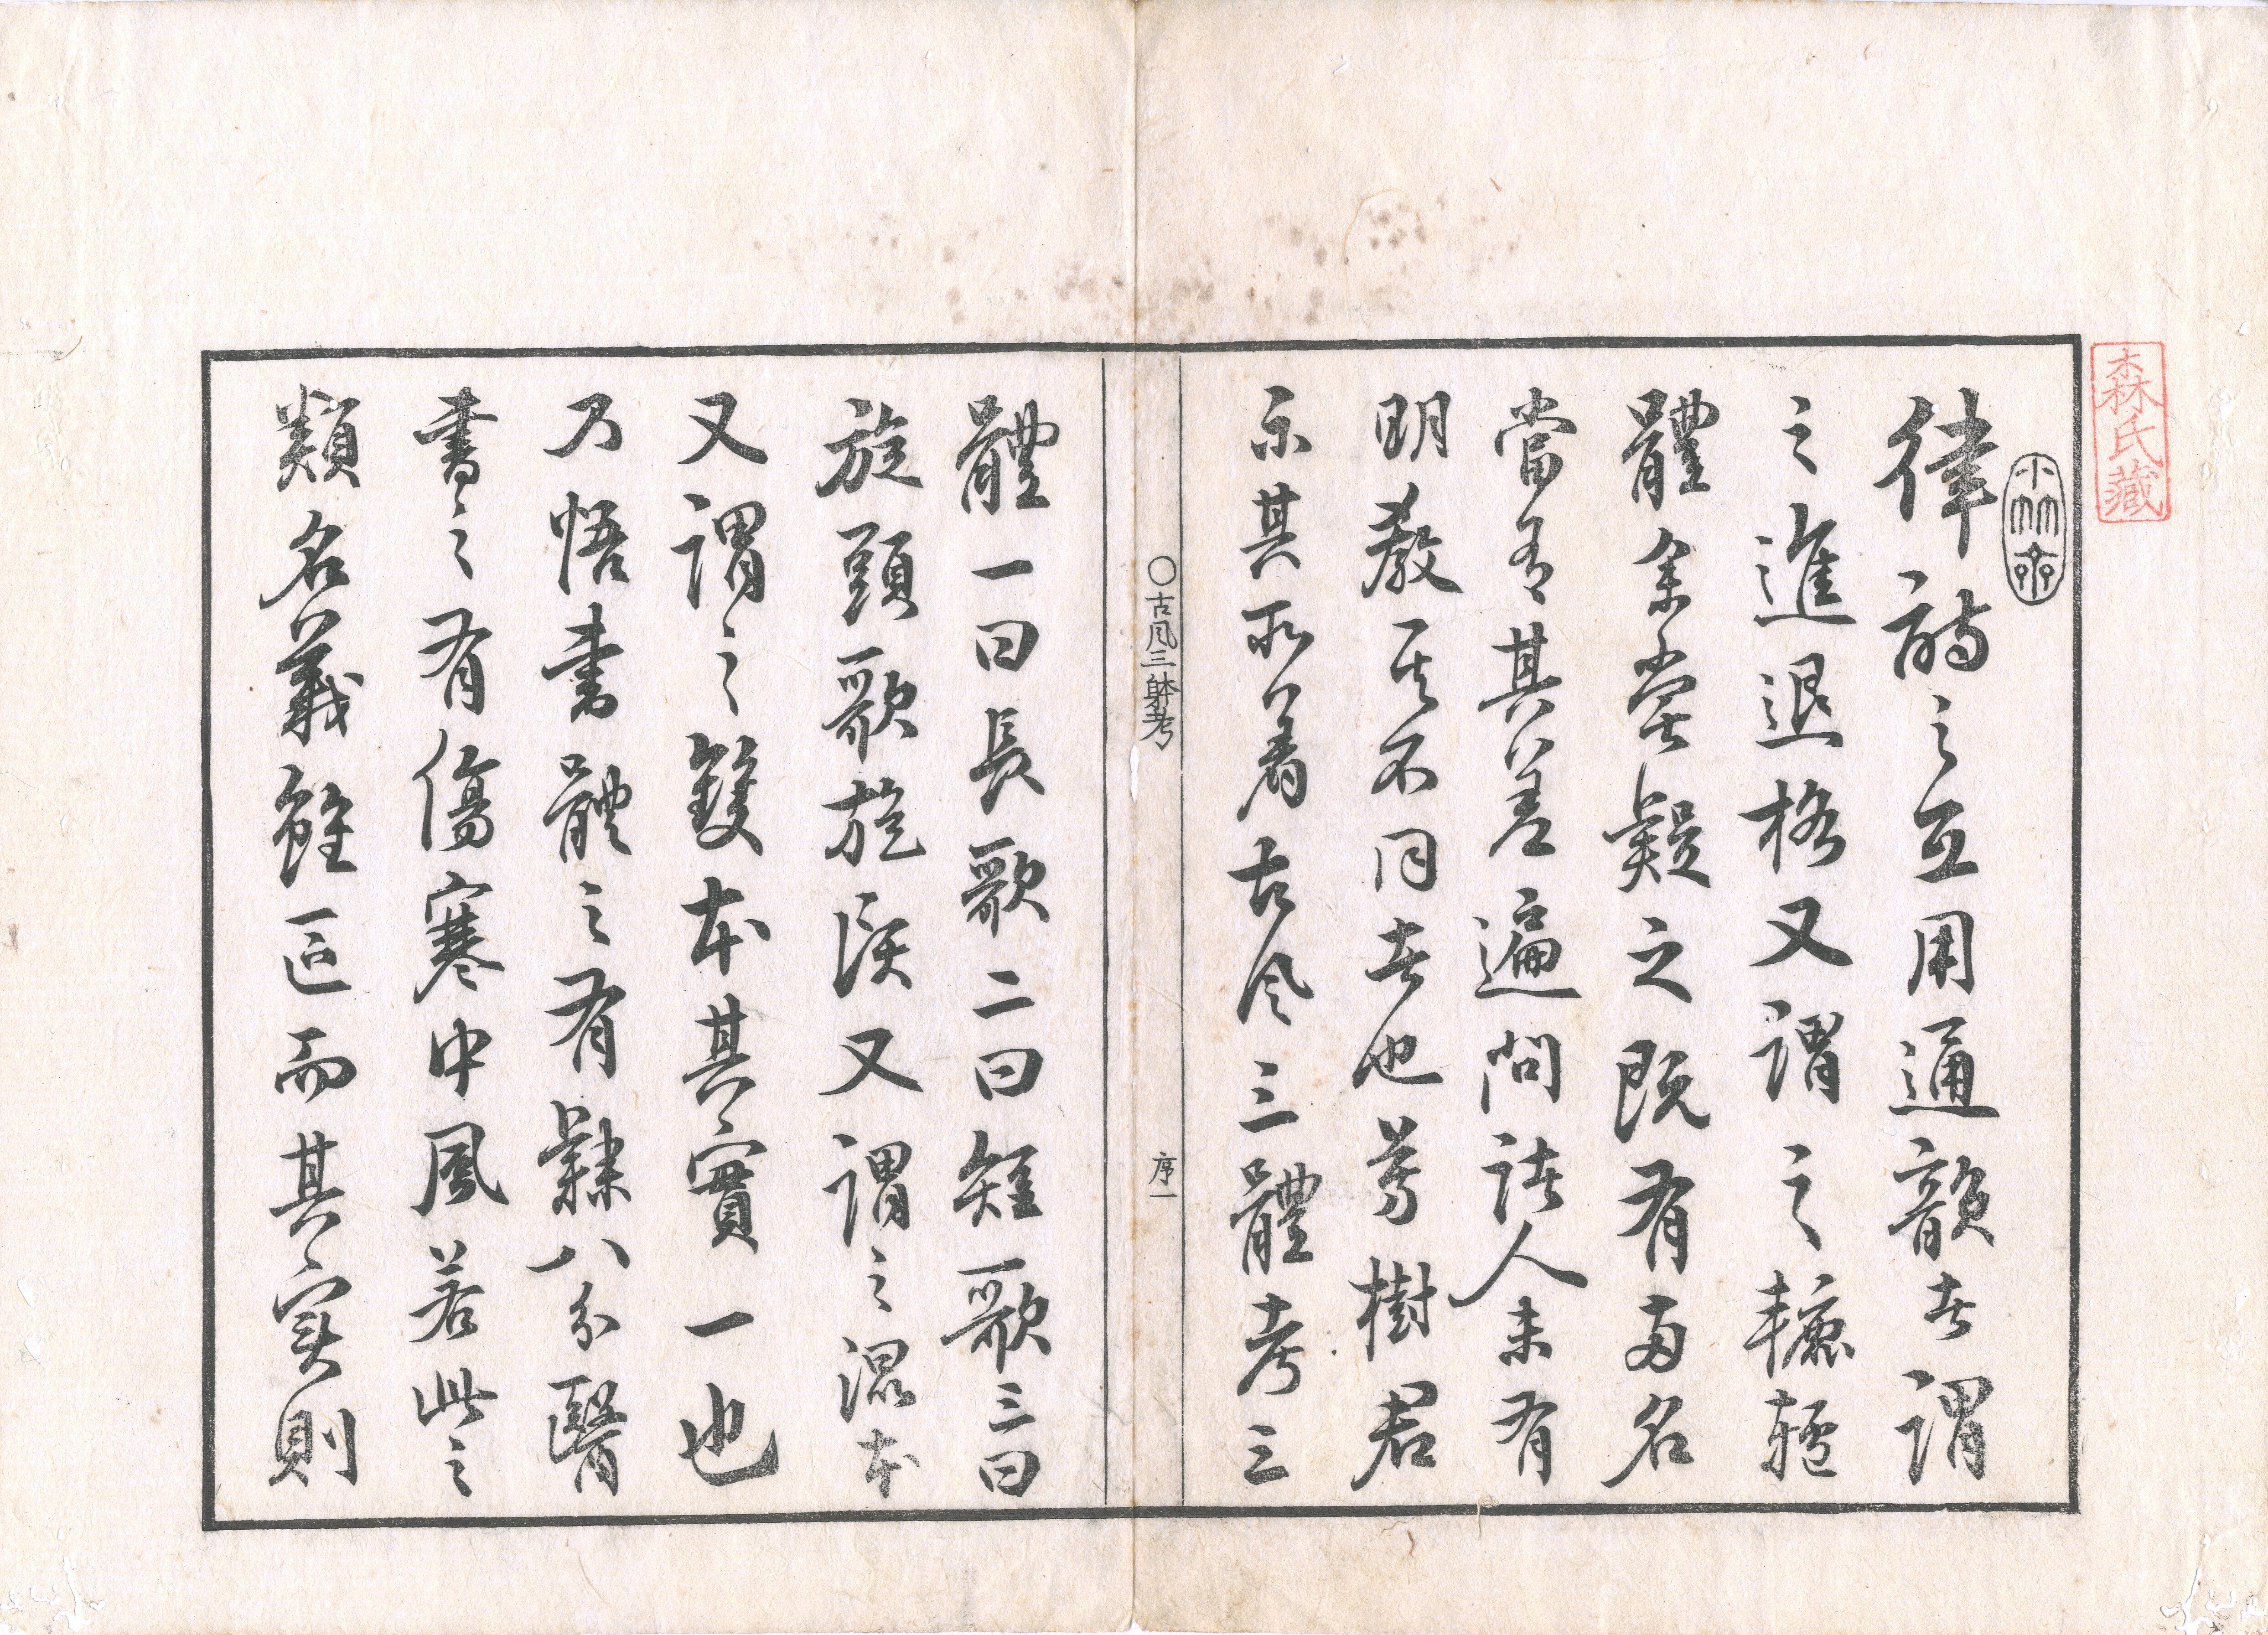 森氏藏
律詩之互用通韻者謂
之進退格又謂之轆轤
體余嘗疑之既有兩名
當有其差遍問諸人未有
明教其不同者也芳樹君
示其所著古風三體考三
〇古風三躰考
序一
體一曰長歌二曰短歌三曰
旋頭歌旋頭又謂之混本
又謂之雙本其實一也
乃悟書體之有隸八分醫
書之有傷寒中風若此之
類名義雖區而其實則